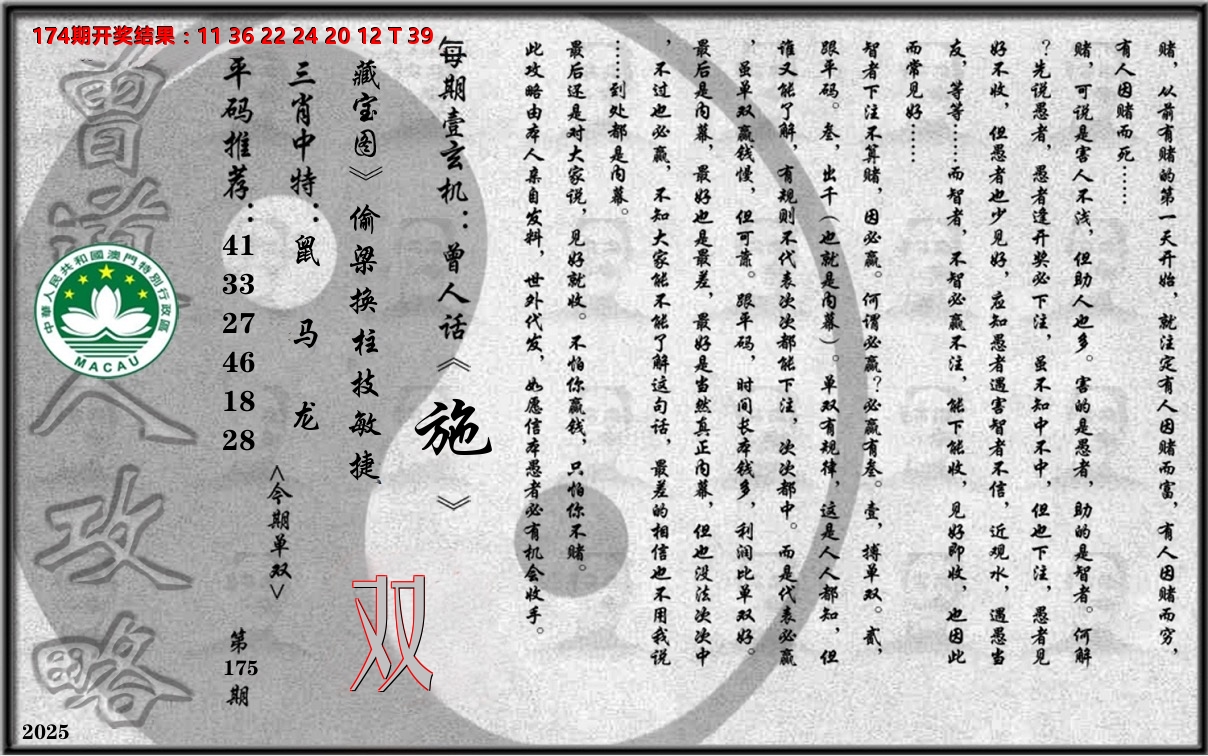 174期开奖结果：11 36 22 24 20 12 T 39
赌，从前有赌的第一天开始，就注定有人因赌而富，有人因赌而穷，
有人因赌而死……
赌，可说是害人不浅，但助人也多。害的是愚者，助的是智者。何解
？先说愚者，愚者逢开奖必下注，虽不知中不中，但也下注，愚者见
好不收，但愚者也少见好，应知愚者遇害智者不信，近观水，遇愚当
友，等等……而智者，不智必赢不注，能下能收，见好即收，也因此
而常见好……
智者下注不算赌，因必赢。何谓必赢？必赢有叁。壹，搏单双。贰，
跟平码。叁，出千（也就是内幕）。单双有规律，这是人人都知，但
谁又能了解，有规则不代表次次都能下注，次次都中。而是代表必赢
，虽单双赢钱慢，但可靠。跟平码，时间长本钱多，利润比单双好。
最后是内幕，最好也是最差，最好是当然真正内幕，但也没法次次中
，不过也必赢，不知大家能不能了解这句话，最差的相信也不用我说
……到处都是内幕。
最后还是对大家说，见好就收。不怕你赢钱，只怕你不赌。
此攻略由本人亲自发料，世外代发，如愿信本愚者必有机会收手。
每期壹玄机：曾人话《施》
藏宝图》偷梁换柱技敏捷
双
三肖中特：鼠 马 龙
<今期单双>
平码推荐：41 33 27 46 18 28
第175期
曾道人攻略
中華人民共和國澳門特別行政區
MACAU
2025